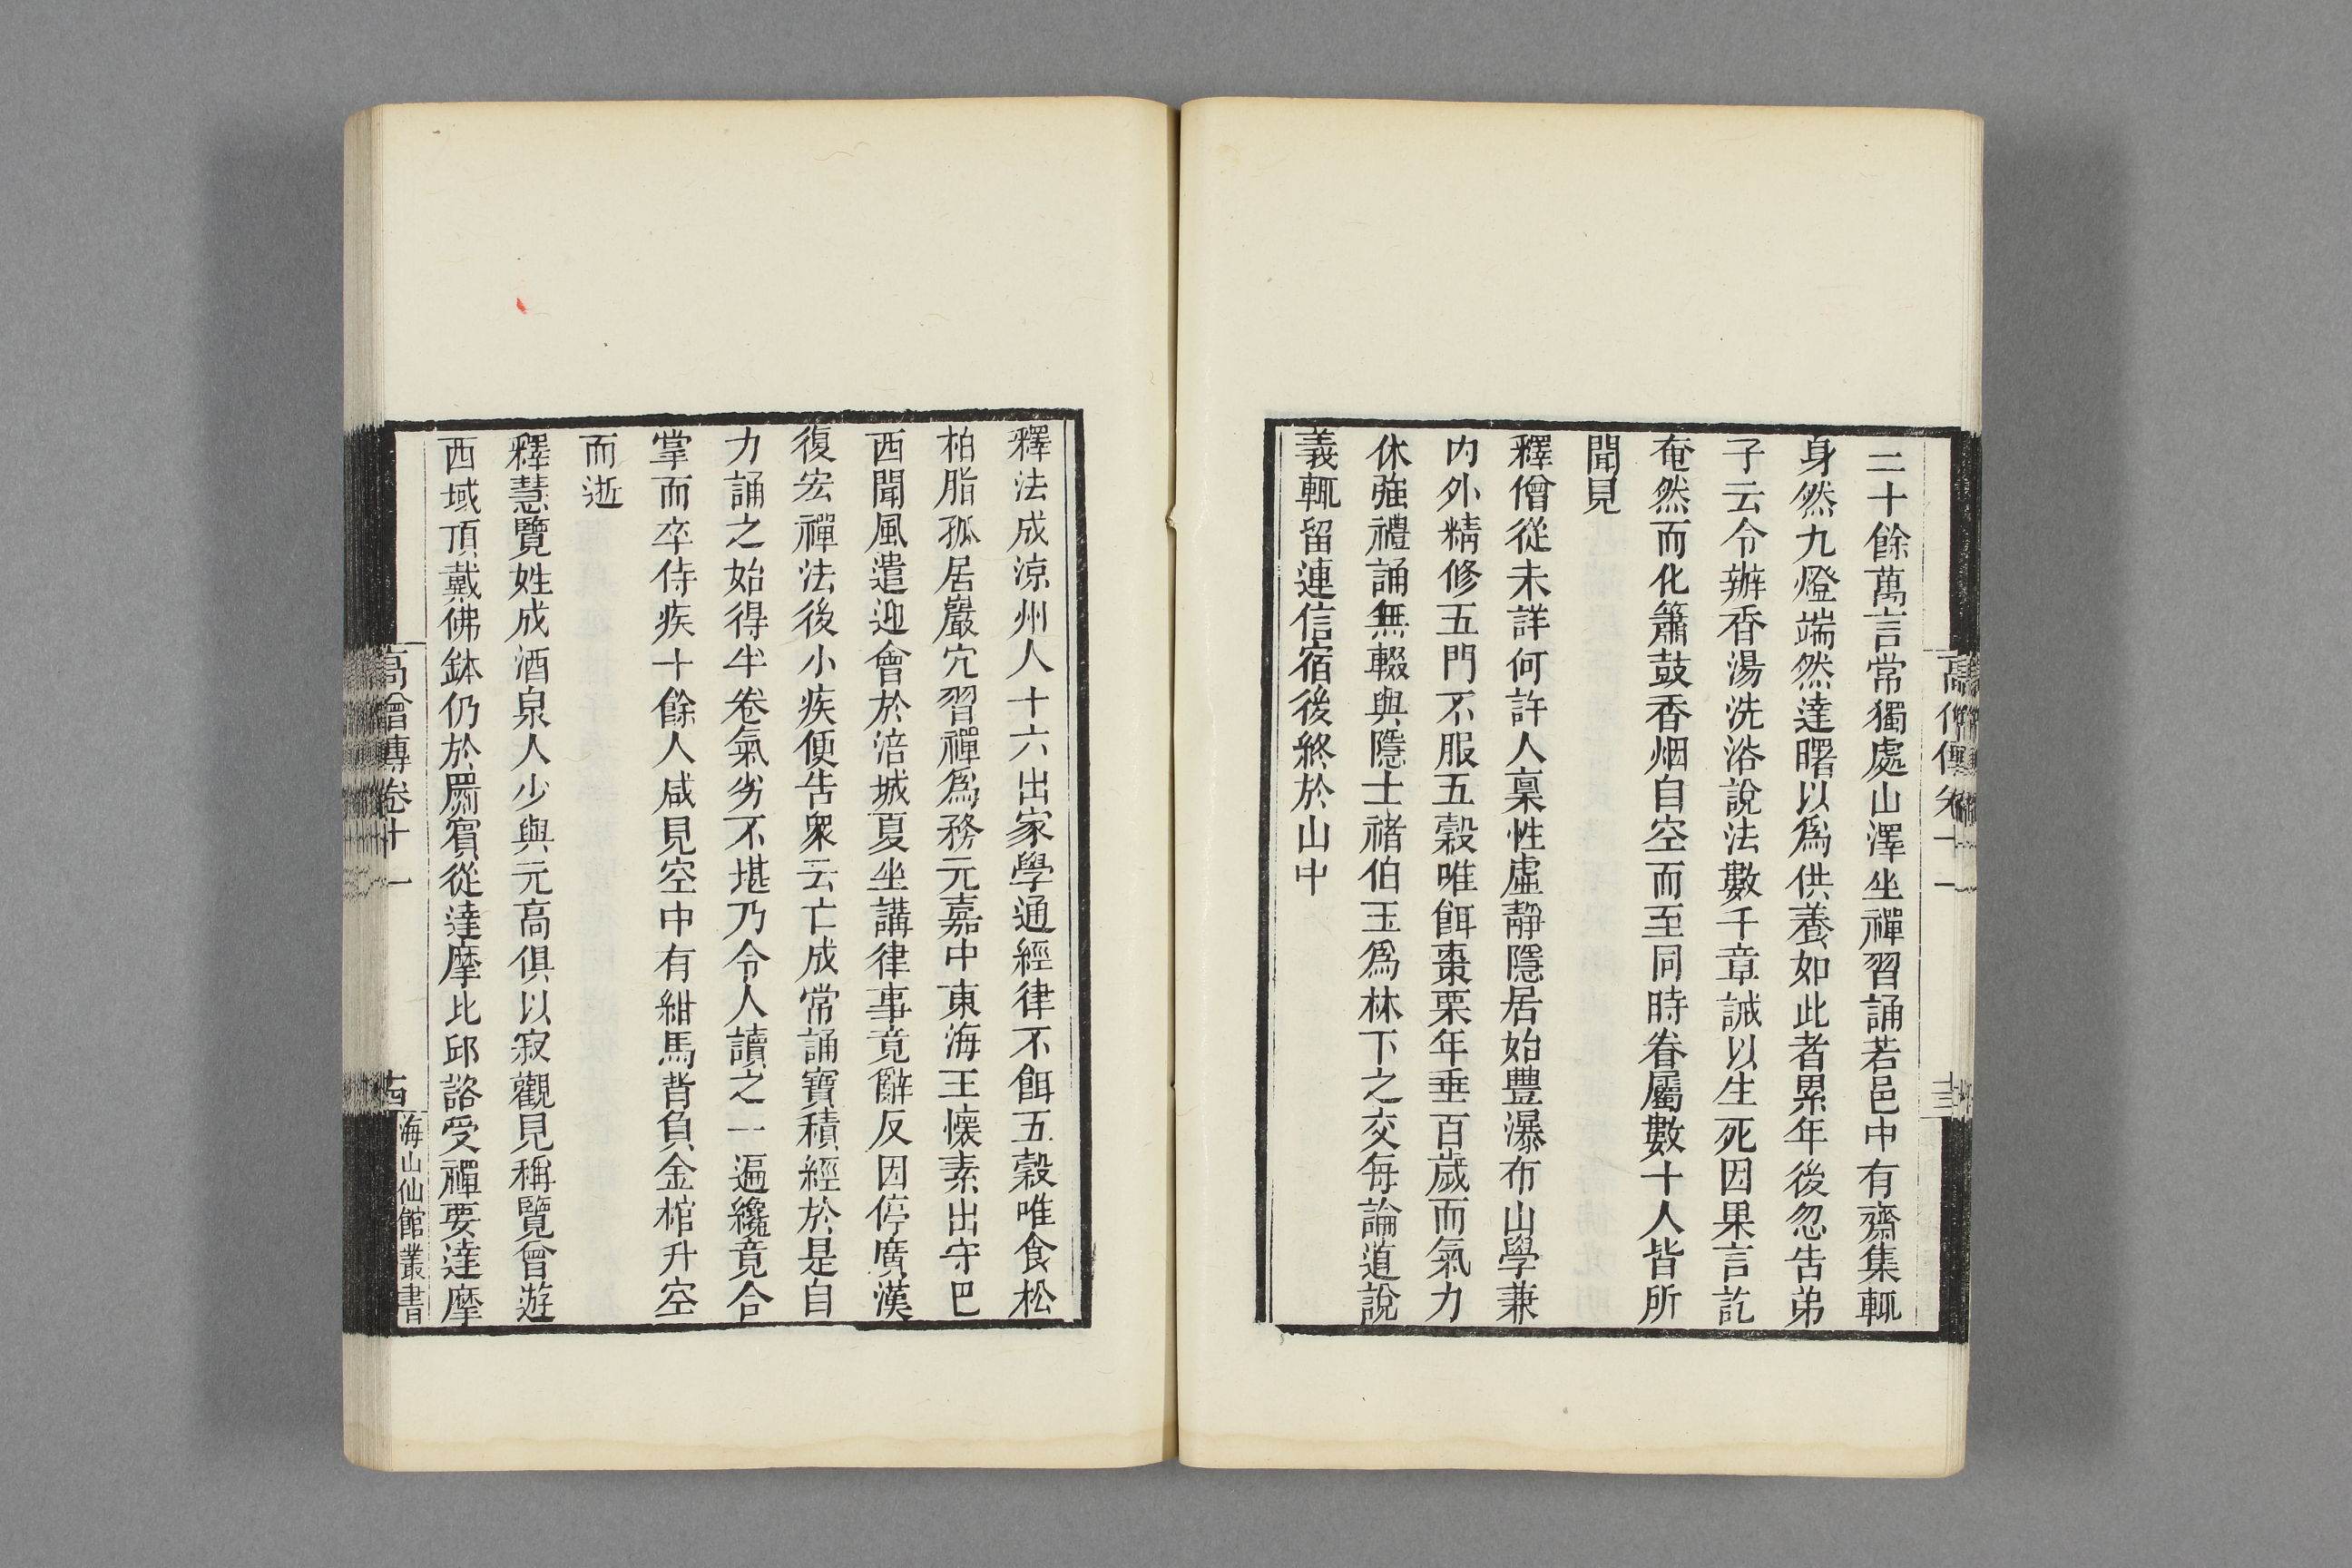 二十餘萬言常獨處山澤坐禪習誦若邑中有齋集輒
身然九燈端然達曙以爲供養如此者累年後忽告弟
子云令辦香湯洗浴說法數千章誡以生死因果言訖
奄然而化簫鼓香烟自空而至同時眷屬數十人皆所
聞見
釋僧從未詳何許人稟性虛靜隱居始豐瀑布山學兼
內外精修五門不服五穀唯餌棗栗年垂百歲而氣力
休強禮誦無輟與隱士禇伯玉爲林下之交每論道說
義輒留連信宿後終於山中
釋法成涼州人十六出家學通經律不餌五穀唯食松
柏脂孤居巖穴習禪爲務元嘉中東海王懷素出守巴
西聞風遣迎會於涪城夏坐講律事竟辭反因停廣漢
復宏禪法後小疾便告衆云亡成常誦寶積經於是自
力誦之始得半卷氣劣不堪乃令人讀之一遍纔竟合
掌而卒侍疾十餘人咸見空中有紺馬背負金棺升空
而逝
釋慧覽姓成酒泉人少與元高俱以寂觀見稱覽曾遊
西域頂戴佛鉢仍於罽賓從達摩比邱諮受禪要達摩
高僧傳卷十一
海山仙館叢書